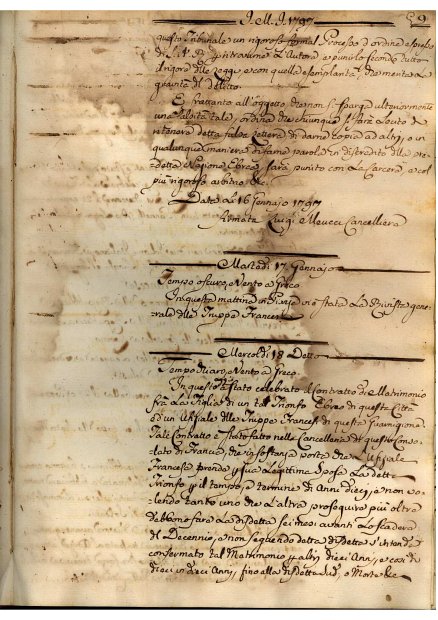 I. M. J. 1797
9
questo Tribunale un rigoroso formal Processo d'ordine espresso
di S. A. R. rintracciare L'Autore e punirlo secondo tutto
il rigore delle Leggi e con quella esemplarità, che merita la
qualità del Delitto
E frattanto all'oggetto che non si sparga ulteriormente
una tale, ordina che chiunque si farà Lecito di
detta falsa Lettera di darne copia ad altri, o in
qualunque maniera di farne parola in discredito della pre-
detta Nazione Ebrea, sarà punito con La Carcere, e col
più rigoroso arbitrio &c.
Data Li 16 Gennajo 1797
Luigi Meucci Cancelliere
Martedì 17 Gennajo
Tempo oscuro, e Vento a Greco
In questa mattina in Piazza vi è stata La Rivista gene-
rale delle Truppe Francesi
Mercoldì 18 Detto
Tempo chiaro, e Vento a Greco
In questo dì è stato celebrato il Contratto di Matrimonio
frà La Figlia di un tal Trionfo Ebreo di questa Città
ed un Uffiziale delle Truppe Francesi di questa Guarnigione
Tale Contratto è stato fatto nella Cancelleria di questo Conso-
lato di Francia, che in sostanza porta che L'Uffiziale
Francese prende per sua Legittima Sposa La detta
Trionfo per il tempo, e termine di Anni dieci, e non vo-
lendo tanto uno che L'altra proseguire più oltre
debbono fare La disdetta sei mesi avanti La scadenza
del Decennio, e non seguendo detta disdetta s'intende
confermato tal Matrimonio per altri dieci Anni, e così di
dieci in dieci Anni, fino alla disdetta sud., o Morte &c.